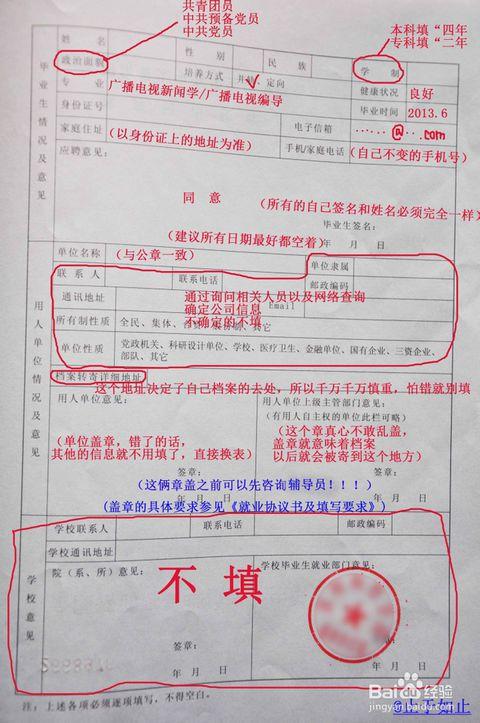 共青团员
中共预备党员
中共党员
本科填“四年
专科填“二年
姓 名 性 别 民 族 学 制
政治面貌 培养方式 定向 √
专 业 广播电视新闻学/广播电视编导 健康状况 良好
身份证号 毕业时间 2013.6
家庭住址 (以身份证上的地址为准) 电子信箱 ······@···.com
应聘意见: 手机/家庭电话 (自己不变的手机号)
毕业生情况及意见
同 意 (所有的自己签名和姓名必须完全一样)
毕业生签名:
(建议所有日期最好都空着) 年 月 日
单位名称 (与公章一致) 单位隶属
联系人 联系电话 邮政编码
通讯地址 Email
通过询问相关人员以及网络查询
确定公司信息
不确定的不填
所有制性质 全民、集体、 其它
单位性质 党政机关、科研设计单位、学校、医疗卫生、金融单位、国有企业、三资企业、
部队、其它
用人单位情况及意见
档案转寄详细地址
这个地址决定了自己档案的去处,所以千万千万慎重,怕错就别填
用人单位意见: 用人单位上级主管部门意见:
(有用人自主权的单位此栏可略)
(单位盖章,错了的话,
其他的信息就不用填了,直接换表)
(这个章真心不敢乱盖,
盖章就意味着档案
以后就会被寄到这个地方)
签章: 签章:
年 月 日 年 月 日
(这俩章盖之前可以先咨询辅导员!!!)
(盖章的具体要求参见《就业协议书及填写要求》)
学校联系人 联系电话 邮政编码
学校通讯地址
院(系、所)意见: 学校毕业生就业部门意见:
学校意见
不 填
签章:
年 月 日 年 月 日
注:上述各项必须逐项填写,不得空白。
Baidu 经验
jingyan.baidu.com